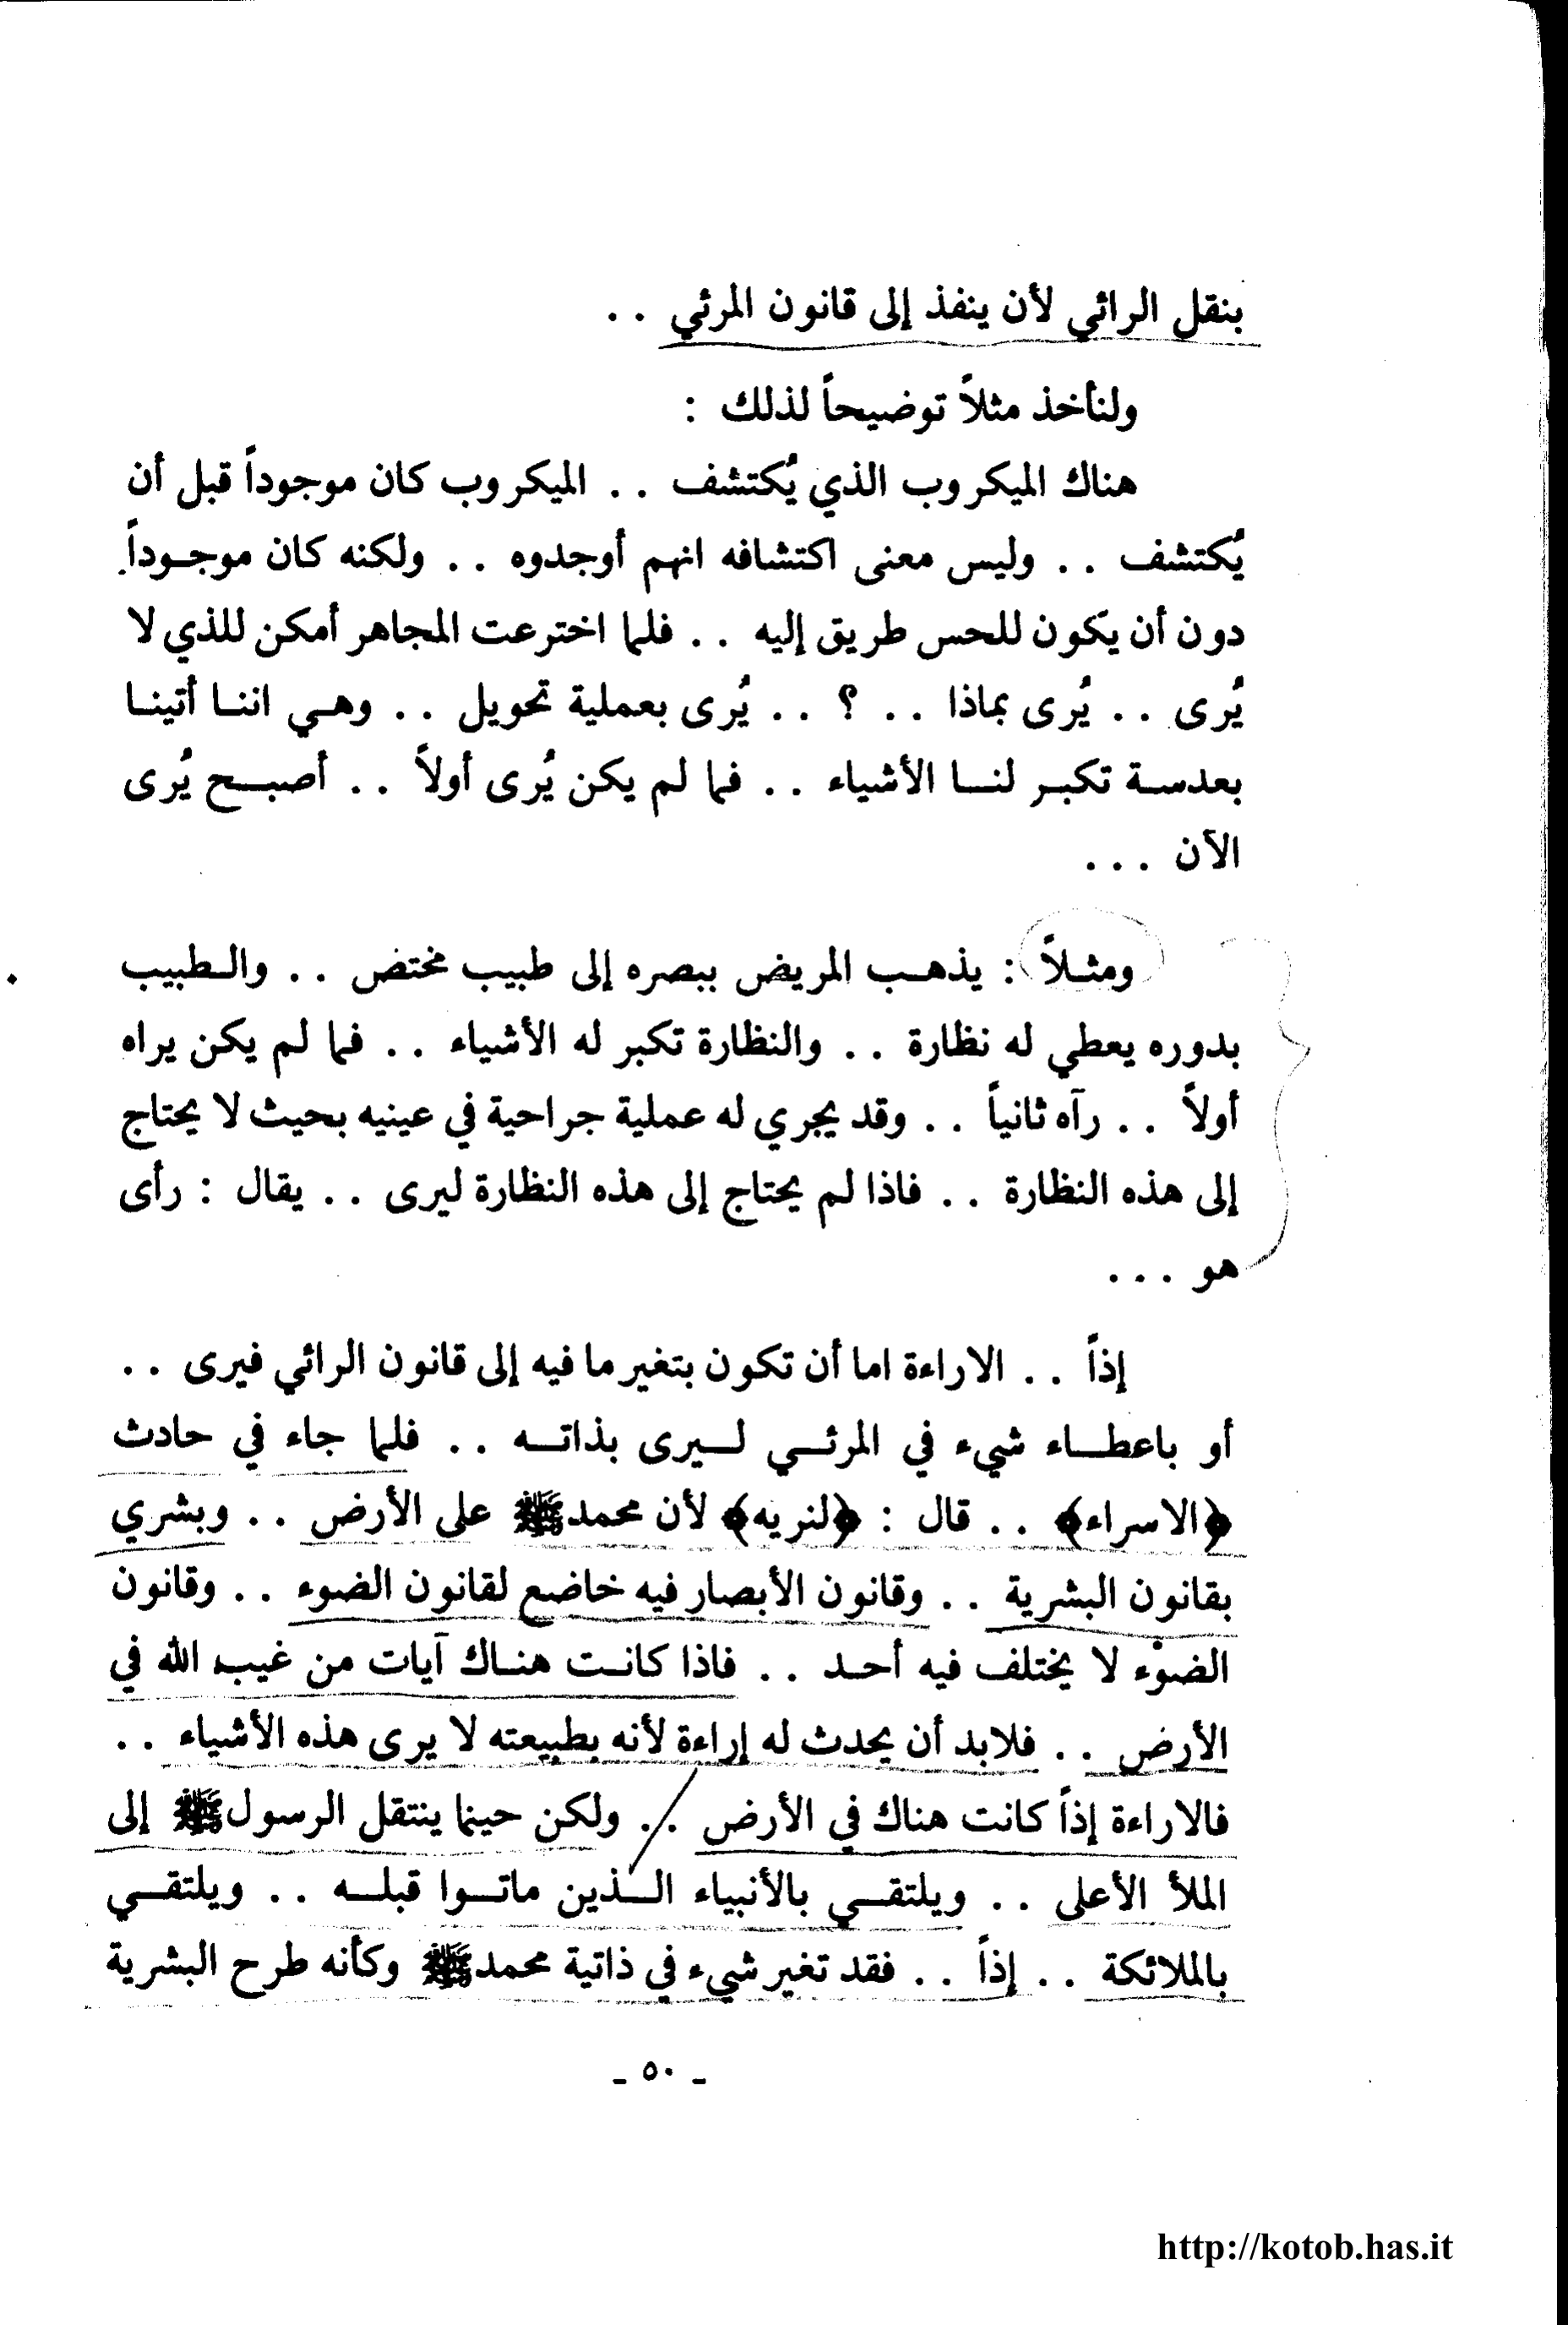 بنقل الرائي لأن ينفذ إلى قانون المرئي . .
ولنأخذ مثلاً توضيحاً لذلك :
هناك الميكروب الذي يُكتشف . . الميكروب كان موجوداً قبل أن
يُكتشف . . وليس معنى اكتشافه انهم أوجدوه . . ولكنه كان موجوداً
دون أن يكون للحس طريق إليه . . فلما اخترعت المجاهر أمكن للذي لا
يُرى . . يُرى بماذا . . ؟ . . يُرى بعملية تحويل . . وهي اننا أتينا
بعدسة تكبر لنا الأشياء . . فما لم يكن يُرى أولاً . . أصبح يُرى
الآن . . .
ومثلاً : يذهب المريض ببصره إلى طبيب مختص . . والطبيب
بدوره يعطي له نظارة . . والنظارة تكبر له الأشياء . . فما لم يكن يراه
أولاً . . رآه ثانياً . . وقد يجري له عملية جراحية في عينيه بحيث لا يحتاج
إلى هذه النظارة . . فاذا لم يحتاج إلى هذه النظارة ليرى . . يقال : رأى
هو . . .
إذاً . . الاراءة اما أن تكون بتغير ما فيه إلى قانون الرائي فيرى . .
أو باعطاء شيء في المرئي ليرى بذاته . . فلما جاء في حادث
﴿الاسراء﴾ . . قال : ﴿لنريه﴾ لأن محمد ﷺ على الأرض . . وبشري
بقانون البشرية . . وقانون الأبصار فيه خاضع لقانون الضوء . . وقانون
الضوء لا يختلف فيه أحد . . فاذا كانت هناك آيات من غيب الله في
الأرض . . فلابد أن يحدث له إراءة لأنه بطبيعته لا يرى هذه الأشياء . .
فالاراءة إذاً كانت هناك في الأرض . . ولكن حينما ينتقل الرسول ﷺ إلى
الملأ الأعلى . . ويلتقي بالأنبياء الذين ماتوا قبله . . ويلتقي
بالملائكة . . إذاً . . فقد تغير شيء في ذاتية محمد ﷺ وكأنه طرح البشرية
ـ ٥٠ ـ
http://kotob.has.it